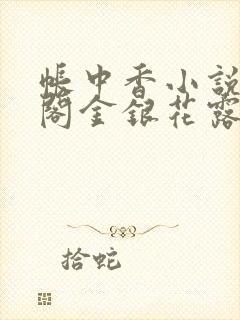 帳中香小說
閣金銀花露
拾蛇